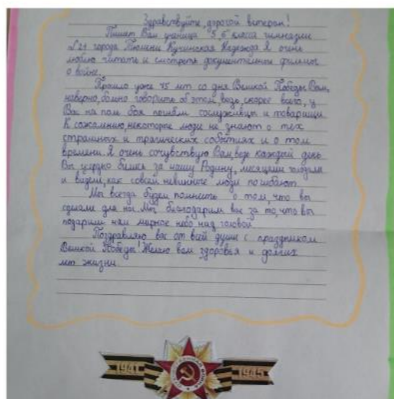 Здравствуйте, дорогой ветеран!
Пишет Вам ученица 5 "б" класса гимназии
№21 города Тюмени Кузинская Надежда. Я очень
люблю читать и смотреть документальные фильмы
о войне.
Прошло уже 75 лет со дня Великой Победы. Вам,
наверно, больно говорить об этом, ведь скорее всего, у
Вас на поле боя погибли сослуживцы и товарищи.
К сожалению, некоторые люди не знают о тех
страшных и трагических событиях и о том
времени. Я очень сочувствую Вам, ведь каждый день
Вы усердно бились за нашу Родину, месяцами голодали
и видели, как совсем невинные люди погибают.
Мы всегда будем помнить о том, что вы
сделали для нас. Мы благодарим вас за то, что вы
подарили нам мирное небо над головой.
Поздравляю вас от всей души с праздником
Великой Победы! Желаю вам здоровья и долгих
лет жизни.
1941 1945